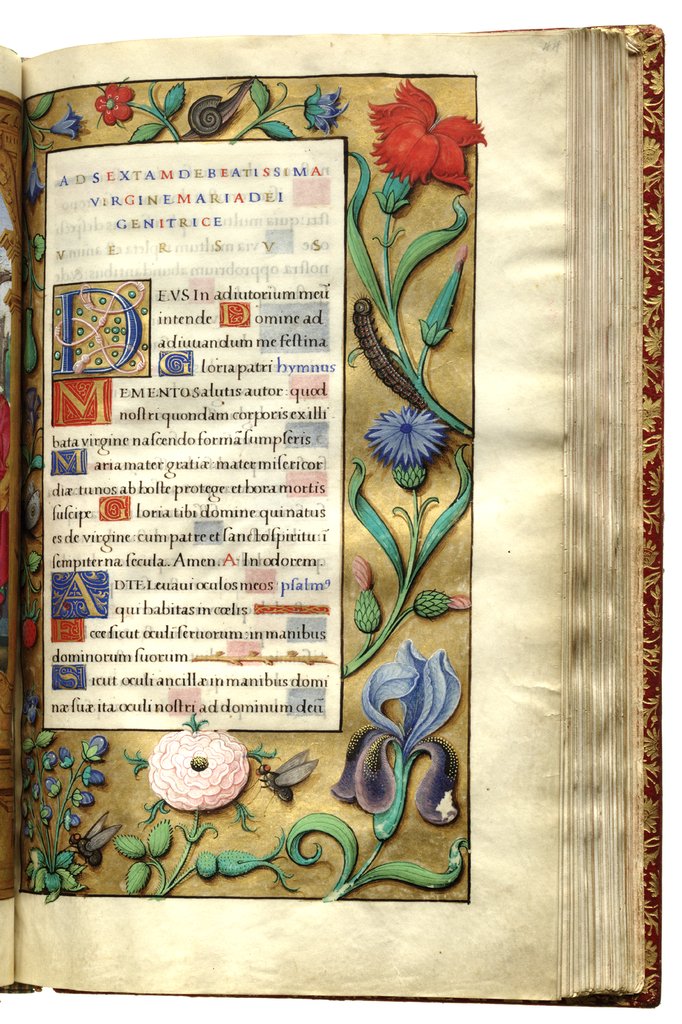 AD SEXTAM DE BEATISSIMA
VIRGINE MARIA DEI
GENITRICE
VERSVS
DEVS In adiutorium meū
intende Domine ad
adiuuandum me festina
Gloria patri hymnus
MEMENTO salutis autor: quod
nostri quondam corporis ex illi
bata virgine nascendo formā sumpseris
Maria mater gratiæ mater misericor
diæ tu nos ab hoste protege et hora mortis
suscipe Gloria tibi domine qui natus
es de virgine: cum patre et sancto spiritu: ī
sempiterna secula. Amen. A In odorem.
AD TE Leuaui oculos meos psalmꝰ
qui habitas in cœlis
Ecce sicut oculi seruorum: in manibus
dominorum suorum
Sicut oculi ancillæ in manibus domi
næ suæ ita oculi nostri ad dominum deū